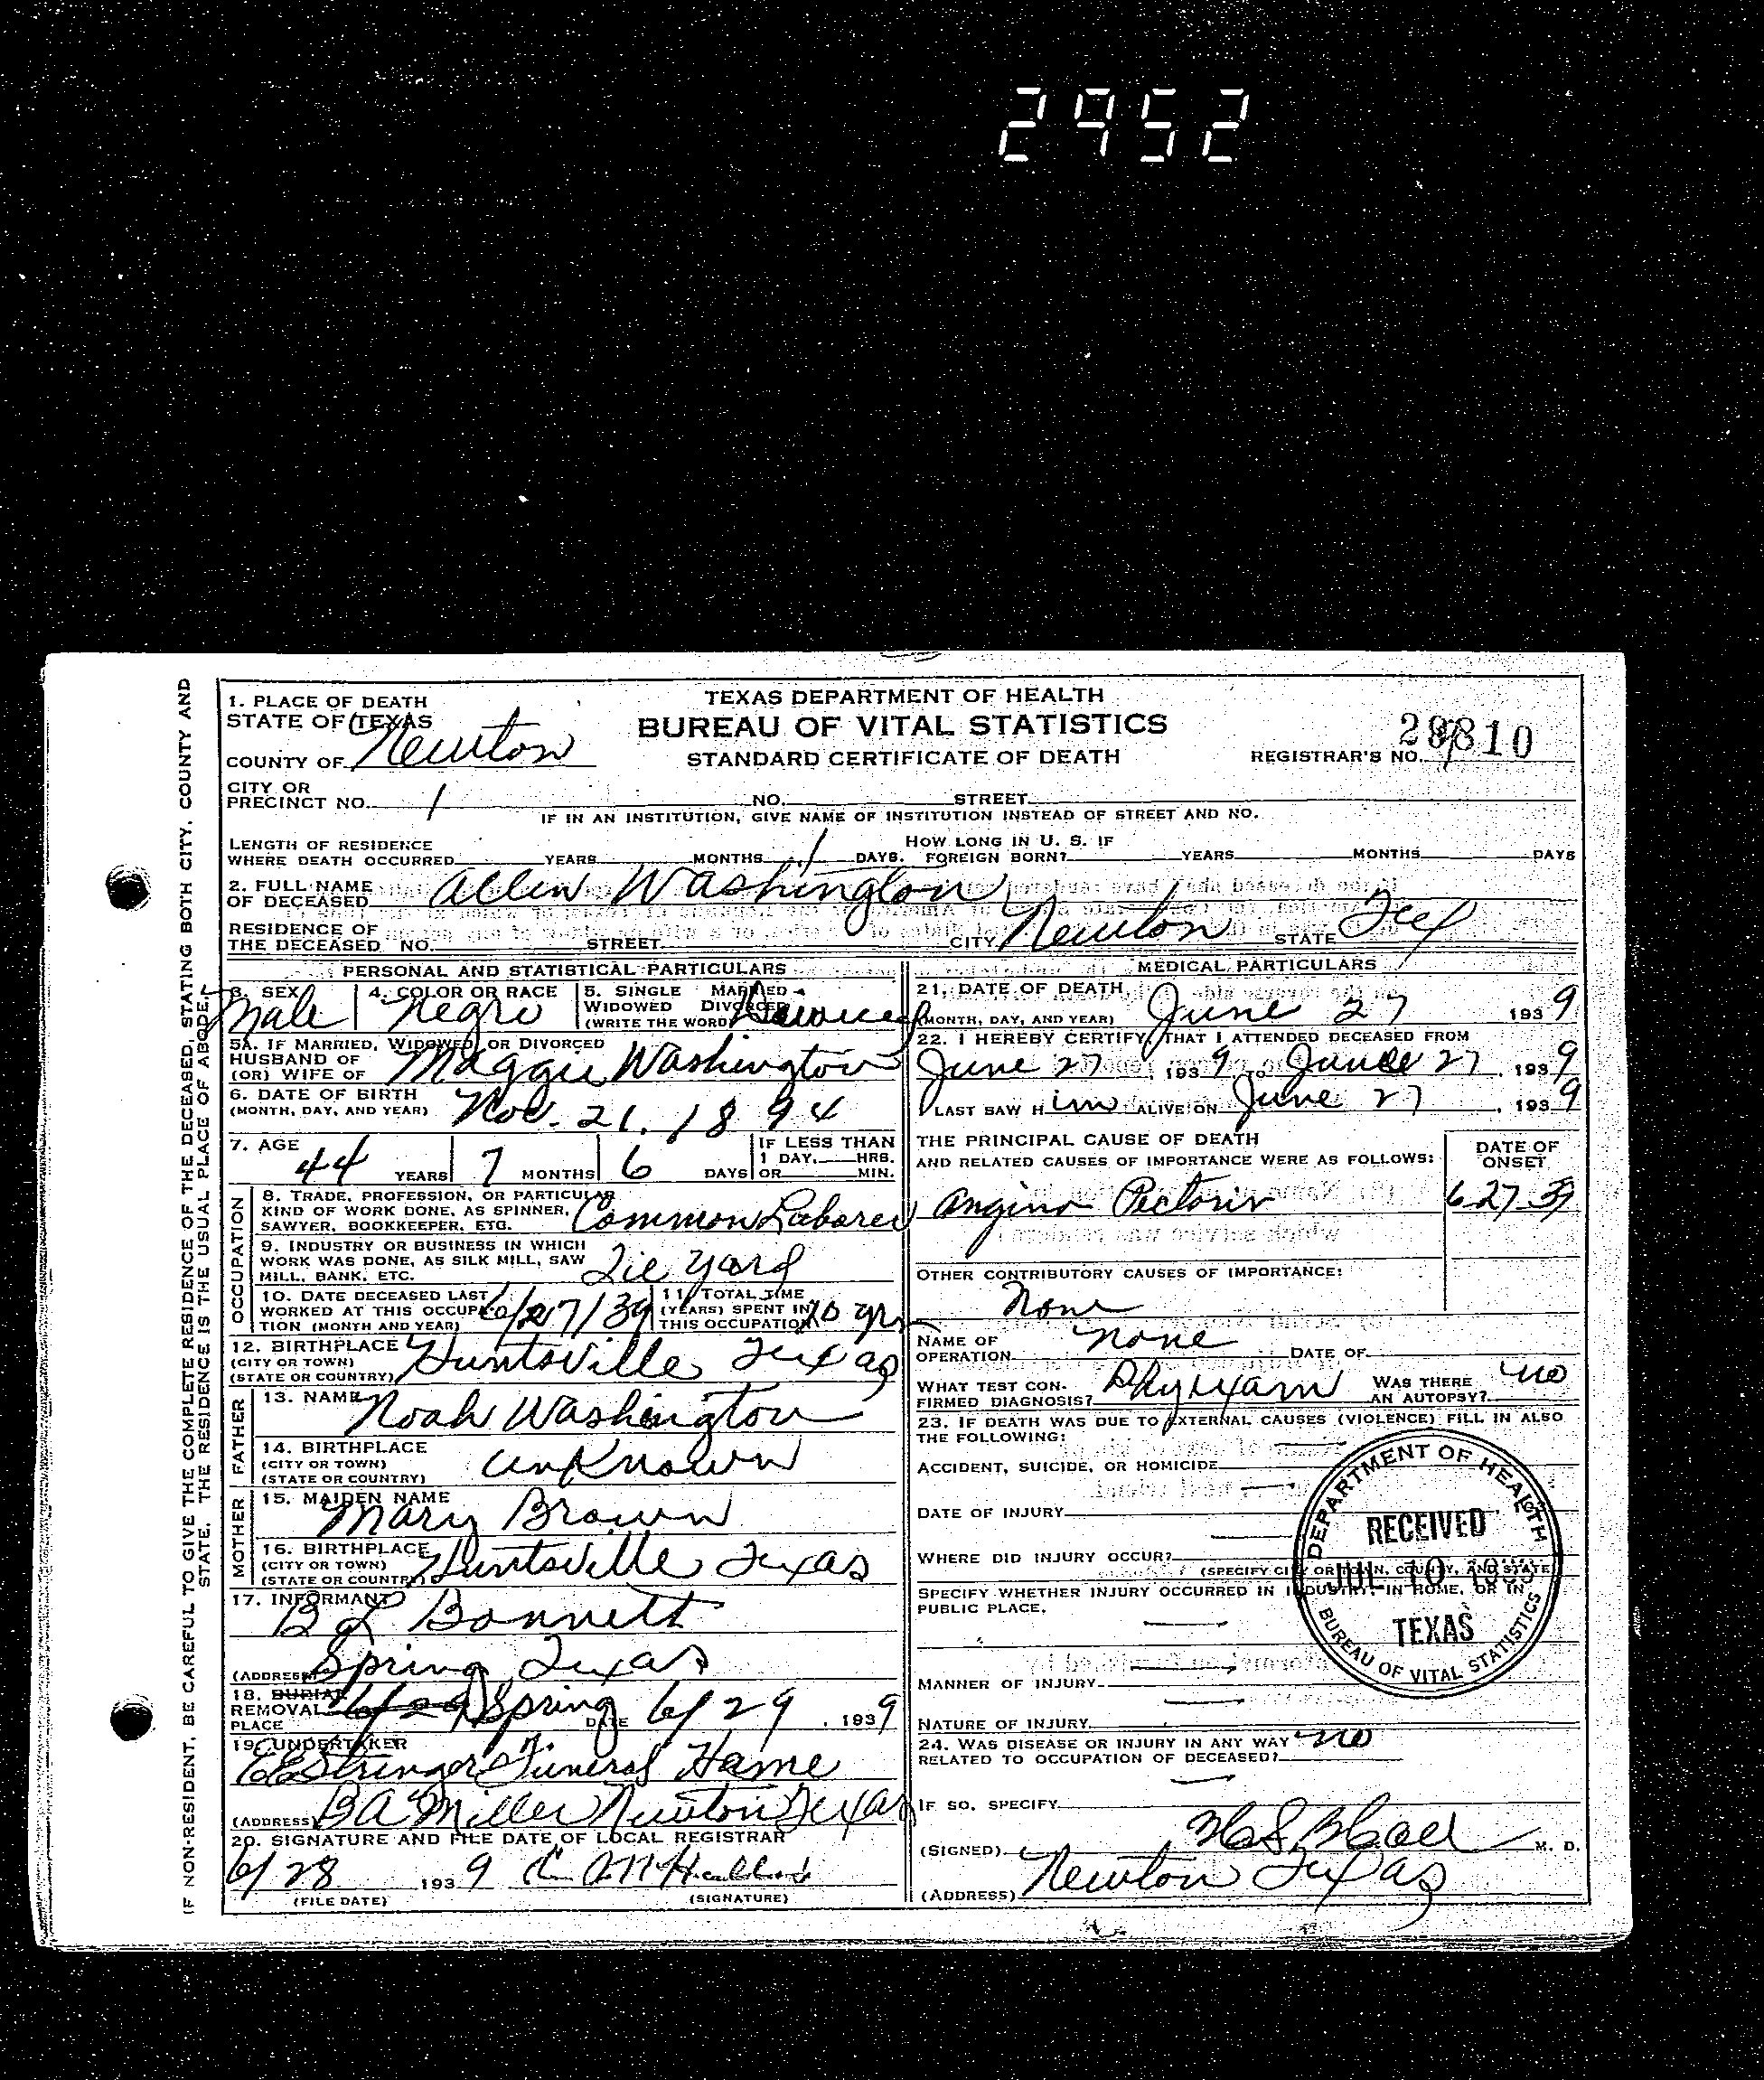 2952
1. PLACE OF DEATH
STATE OF TEXAS
COUNTY OF Newton
TEXAS DEPARTMENT OF HEALTH
BUREAU OF VITAL STATISTICS
STANDARD CERTIFICATE OF DEATH
REGISTRAR'S NO.
CITY OR
PRECINCT NO. 1 NO. STREET
IF IN AN INSTITUTION, GIVE NAME OF INSTITUTION INSTEAD OF STREET AND NO.
LENGTH OF RESIDENCE
WHERE DEATH OCCURRED YEARS MONTHS 1 DAYS. HOW LONG IN U. S. IF FOREIGN BORN? YEARS MONTHS DAYS
2. FULL NAME
OF DECEASED Allen Washington
RESIDENCE OF
THE DECEASED NO. STREET CITY Newton STATE Tex
PERSONAL AND STATISTICAL PARTICULARS
3. SEX Male 4. COLOR OR RACE Negro 5. SINGLE MARRIED WIDOWED DIVORCED (WRITE THE WORD) Divorced
5A. IF MARRIED, WIDOWED, OR DIVORCED
HUSBAND OF
(OR) WIFE OF Maggie Washington
6. DATE OF BIRTH
(MONTH, DAY, AND YEAR) Nov. 21. 1894
7. AGE 44 YEARS 7 MONTHS 6 DAYS IF LESS THAN 1 DAY, HRS. OR MIN.
OCCUPATION
8. TRADE, PROFESSION, OR PARTICULAR
KIND OF WORK DONE, AS SPINNER,
SAWYER, BOOKKEEPER, ETC. Common Laborer
9. INDUSTRY OR BUSINESS IN WHICH
WORK WAS DONE, AS SILK MILL, SAW
MILL, BANK, ETC. Tie Yard
10. DATE DECEASED LAST
WORKED AT THIS OCCUPA-
TION (MONTH AND YEAR) 6/27/39 11. TOTAL TIME (YEARS) SPENT IN THIS OCCUPATION 10 yrs
12. BIRTHPLACE
(CITY OR TOWN)
(STATE OR COUNTRY) Huntsville Texas
FATHER
13. NAME Noah Washington
14. BIRTHPLACE
(CITY OR TOWN)
(STATE OR COUNTRY) unKnown
MOTHER
15. MAIDEN NAME Mary Brown
16. BIRTHPLACE
(CITY OR TOWN)
(STATE OR COUNTRY) Huntsville Texas
17. INFORMANT B L Bonnett
(ADDRESS) Spring Texas
18. BURIAL
REMOVAL
PLACE 6/29 Spring DATE 6/29, 1939
19. UNDERTAKER
EE Stringer Funeral Home
(ADDRESS) BA Miller Newton Texas
20. SIGNATURE AND FILE DATE OF LOCAL REGISTRAR
6/28 1939
(FILE DATE) (SIGNATURE)
MEDICAL PARTICULARS
21. DATE OF DEATH
(MONTH, DAY, AND YEAR) June 27 1939
22. I HEREBY CERTIFY THAT I ATTENDED DECEASED FROM
June 27, 1939 TO June 27, 1939
I LAST SAW Him ALIVE ON June 27, 1939
THE PRINCIPAL CAUSE OF DEATH
AND RELATED CAUSES OF IMPORTANCE WERE AS FOLLOWS: DATE OF ONSET
Angina Pectoris 6-27-39
OTHER CONTRIBUTORY CAUSES OF IMPORTANCE:
None
NAME OF
OPERATION none DATE OF
WHAT TEST CON-
FIRMED DIAGNOSIS? Phy exam WAS THERE AN AUTOPSY? no
23. IF DEATH WAS DUE TO EXTERNAL CAUSES (VIOLENCE) FILL IN ALSO
THE FOLLOWING:
ACCIDENT, SUICIDE, OR HOMICIDE
DATE OF INJURY
WHERE DID INJURY OCCUR?
(SPECIFY CITY OR TOWN, COUNTY, AND STATE)
SPECIFY WHETHER INJURY OCCURRED IN INDUSTRY, IN HOME, OR IN
PUBLIC PLACE.
MANNER OF INJURY
NATURE OF INJURY
24. WAS DISEASE OR INJURY IN ANY WAY
RELATED TO OCCUPATION OF DECEASED? no
IF SO, SPECIFY
(SIGNED) M. D.
(ADDRESS) Newton Texas
DEPARTMENT OF HEALTH
RECEIVED
JUL 10 1939
TEXAS
BUREAU OF VITAL STATISTICS
IF NON-RESIDENT, BE CAREFUL TO GIVE THE COMPLETE RESIDENCE OF THE DECEASED, STATING BOTH CITY, COUNTY AND
STATE. THE RESIDENCE IS THE USUAL PLACE OF ABODE.